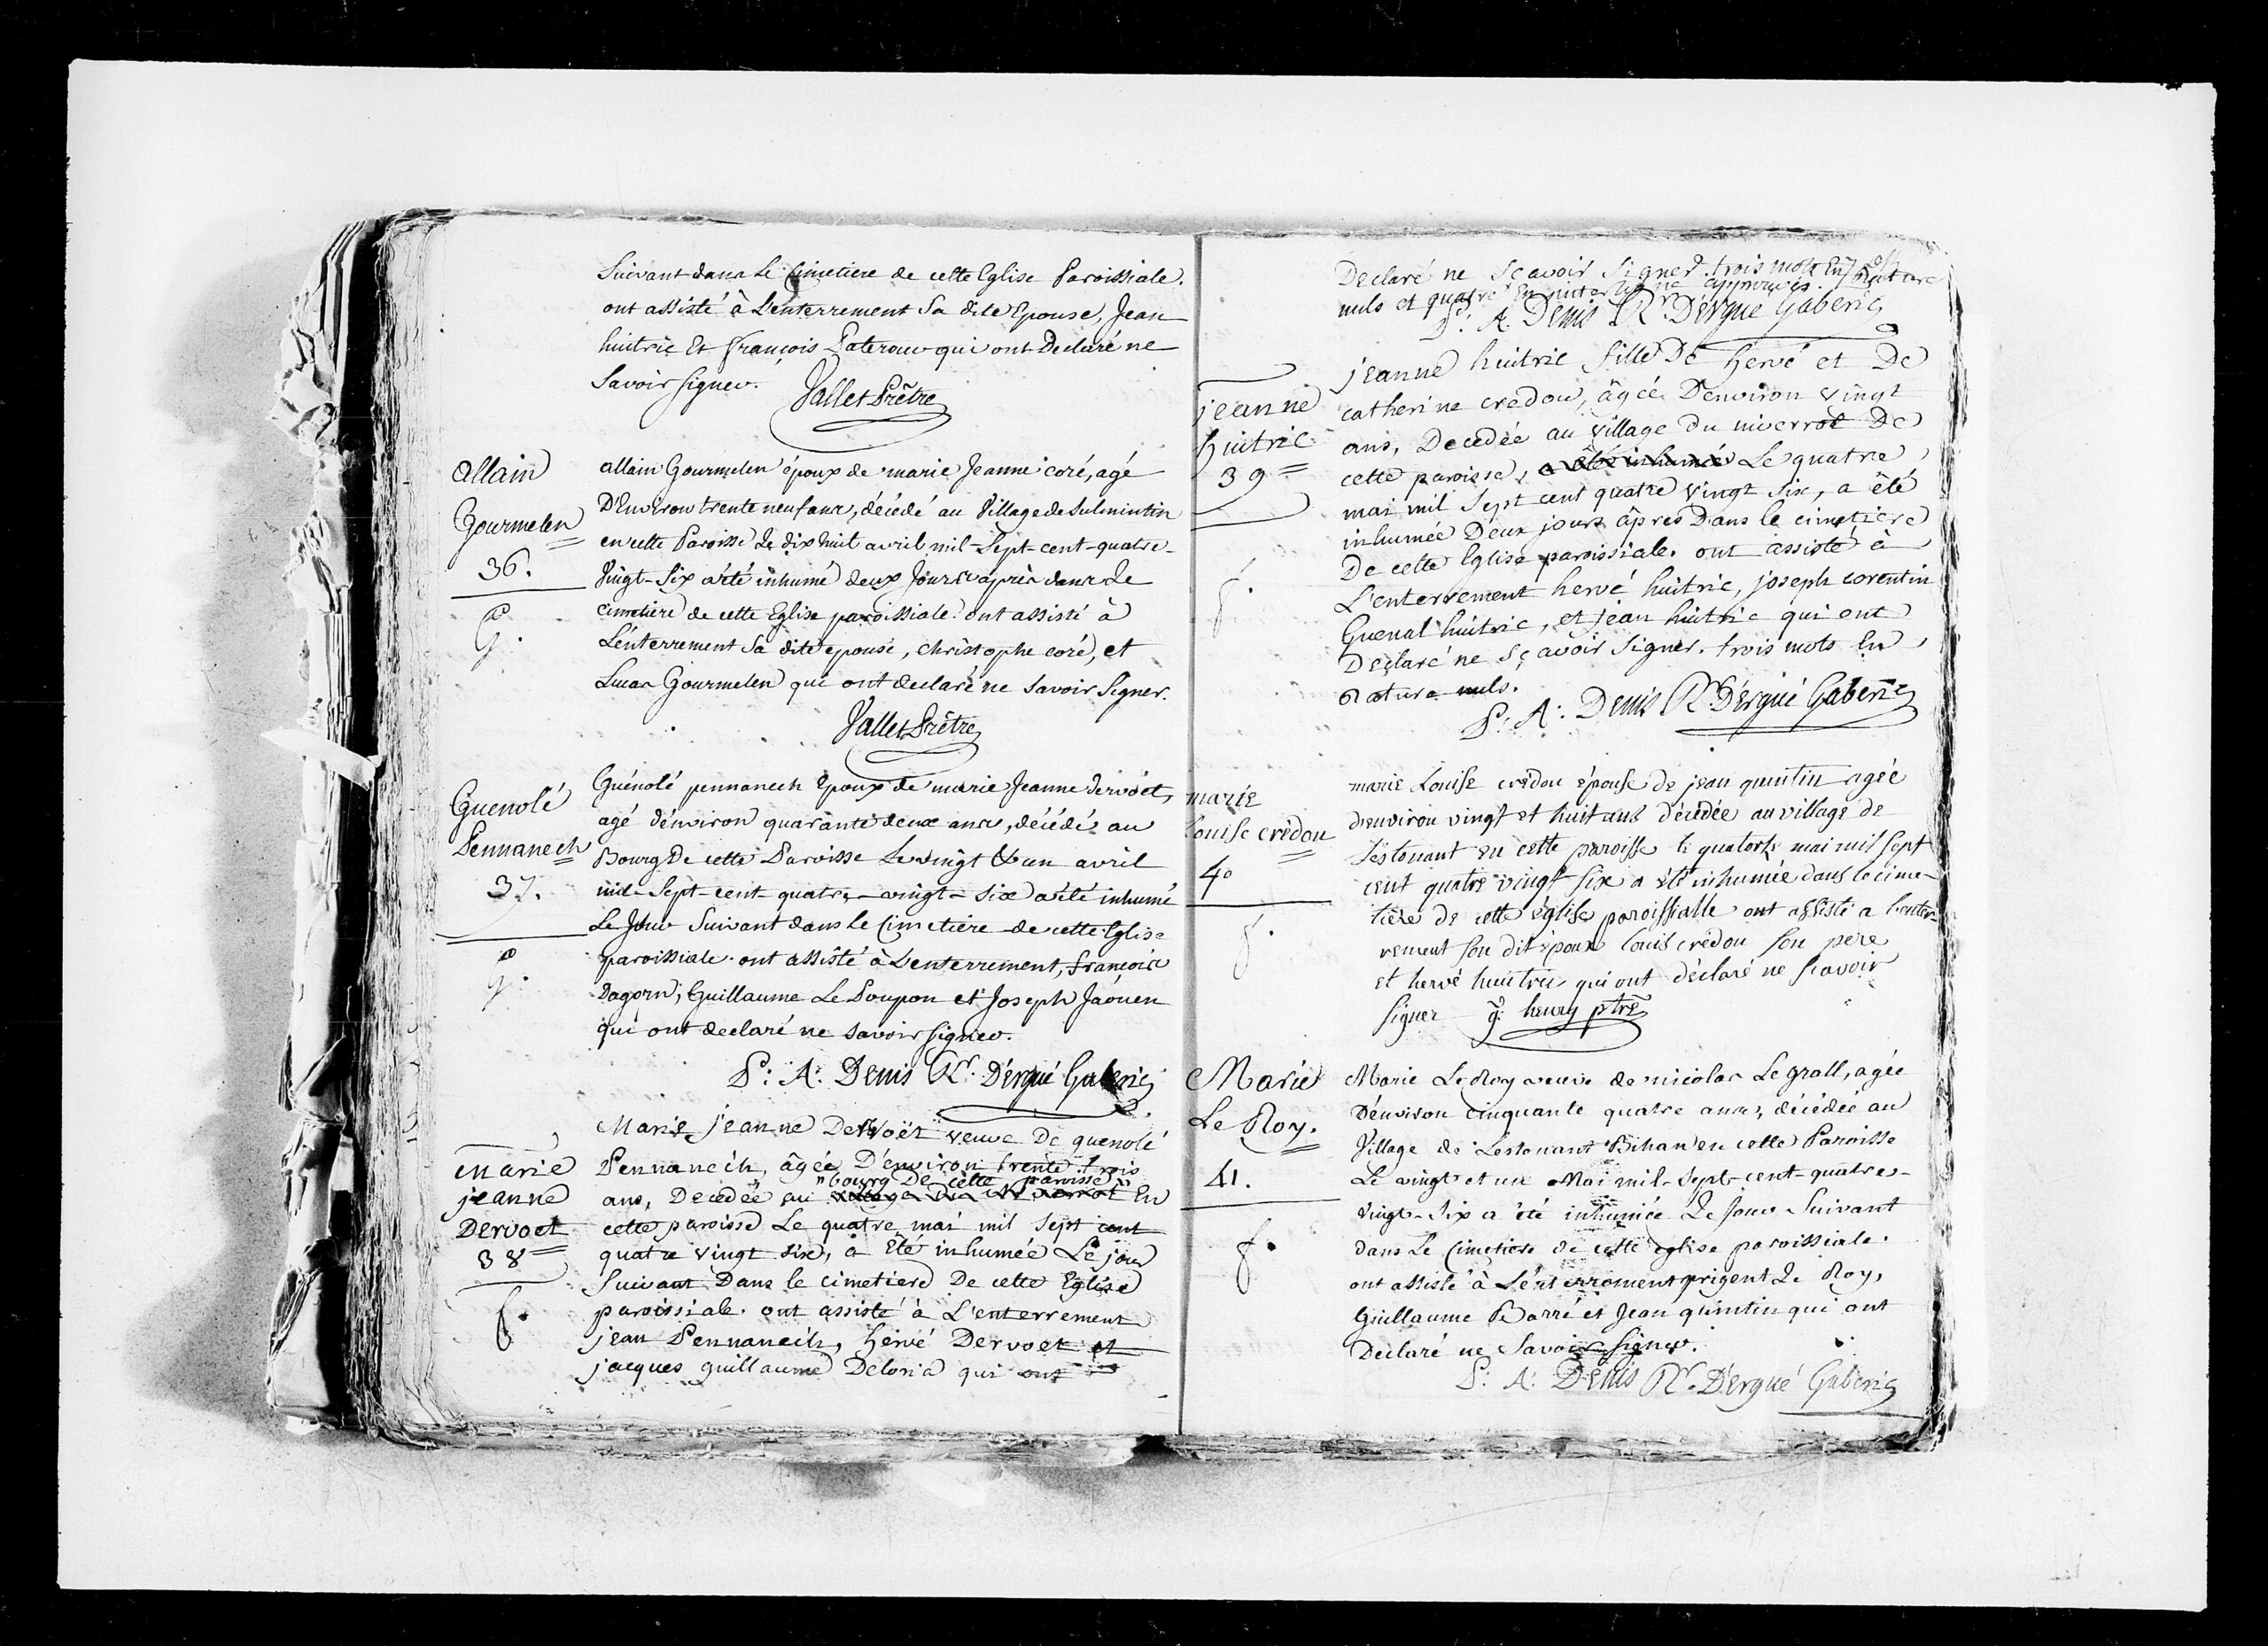 Suivant dans le Cimetiere de cette Eglise Paroissiale.
ont assisté à L'enterrement Sa dite Epouse, Jean
huitric Et françois Laterouv qui ont Declaré ne
Savoir signer.
Vallet Prêtre
allain
Gourmelen
36.
G.
allain Gourmelen époux de marie Jeanne coré, agé
D'Environ trente neuf ans, décédé au Village de Sulvintin
en cette Paroisse Le dix huit avril mil-Sept-cent-quatre-
Vingt-Six a été inhumé deux Jours après dans Le
cimetière de cette Eglise paroissiale. ont assisté à
L'enterrement Sa dite epouse, christophe coré, et
Lucas Gourmelen qui ont declaré ne savoir Signer.
Vallet Prêtre
Guenolé
Pennanech
37.
G.
Guénolé pennanech Epoux de marie Jeanne dervoët,
agé d'environ quarante deux ans, décédé au
Bourg De cette Paroisse Le vingt & un avril
mil-Sept-cent-quatre-vingt-six a été inhumé
Le Jour Suivant dans le Cimetière de cette Eglise
paroissiale. ont assisté à L'enterrement, françois
Dagorn, Guillaume Le Poupon et Joseph Jaouen
qui ont declaré ne savoir signer.
P: A: Denis Rr. D'ergué Gaberic
marie
jeanne
Dervoet
38
f.
Marie jeanne Dervoët veuve De guenolé
Pennanech, âgée D'environ trente trois
ans, Decedée au bourg De cette paroisse En
cette paroisse Le quatre mai mil sept cent
quatre vingt six, a Eté inhumée Le jour
Suivant Dans le cimetiere De cette Eglise
paroissiale. ont assisté à L'enterrement
jean Pennanech, hervé Dervoet et
jacques guillaume Deloria qui ont
Declaré ne sçavoir signer. trois mots En rature
nuls et quatre En interligne approuvés.
P. A. Denis Rr D'ergué Gaberic
jeanne
huitric
39
f.
jeanne huitric fille De hervé et De
catherine credou, âgée D'environ vingt
ans, Decedée au village du niverrot De
cette paroisse, a été inhumée Le quatre
mai mil Sept cent quatre vingt six, a été
inhumée Deux jours âpres Dans le cimetiere
De cette Eglise paroissiale. ont assisté à
L'enterrement hervé huitric, joseph corentin
Guenal huitric, et jean huitric qui ont
Declaré ne Sçavoir Signer. trois mots En
rature nuls.
P: A: Denis Rr. D'ergué Gaberic
marie
louise crédou
40
f.
marie Louise crédou épouse de jean quintin agée
d'environ vingt et huit ans décédée au village de
Lestonant en cette paroisse le quatorze mai mil sept
cent quatre vingt six a été inhumée dans le cime-
tière de cette église paroissialle ont assisté a l'enter-
rement son dit époux louis crédou son pere
et hervé huitric qui ont déclaré ne scavoir
signer g: henry ptre
Marie
Le Roy.
41.
f.
Marie Le Roy veuve de nicolas Le grall, agée
D'environ cinquante quatre ans, décédée au
Village de Lestonant Bihan en cette Paroisse
Le vingt et un Mai mil-sept-cent-quatre-
Vingt-Six a été inhumée Le Jour Suivant
dans Le Cimetiere de cette eglise paroissiale.
ont assisté à L'enterrement prigent Le Roy,
Guillaume Barré et Jean quintin qui ont
Declaré ne Savoir signer.
P: A: Denis Rr. D'ergué Gaberic